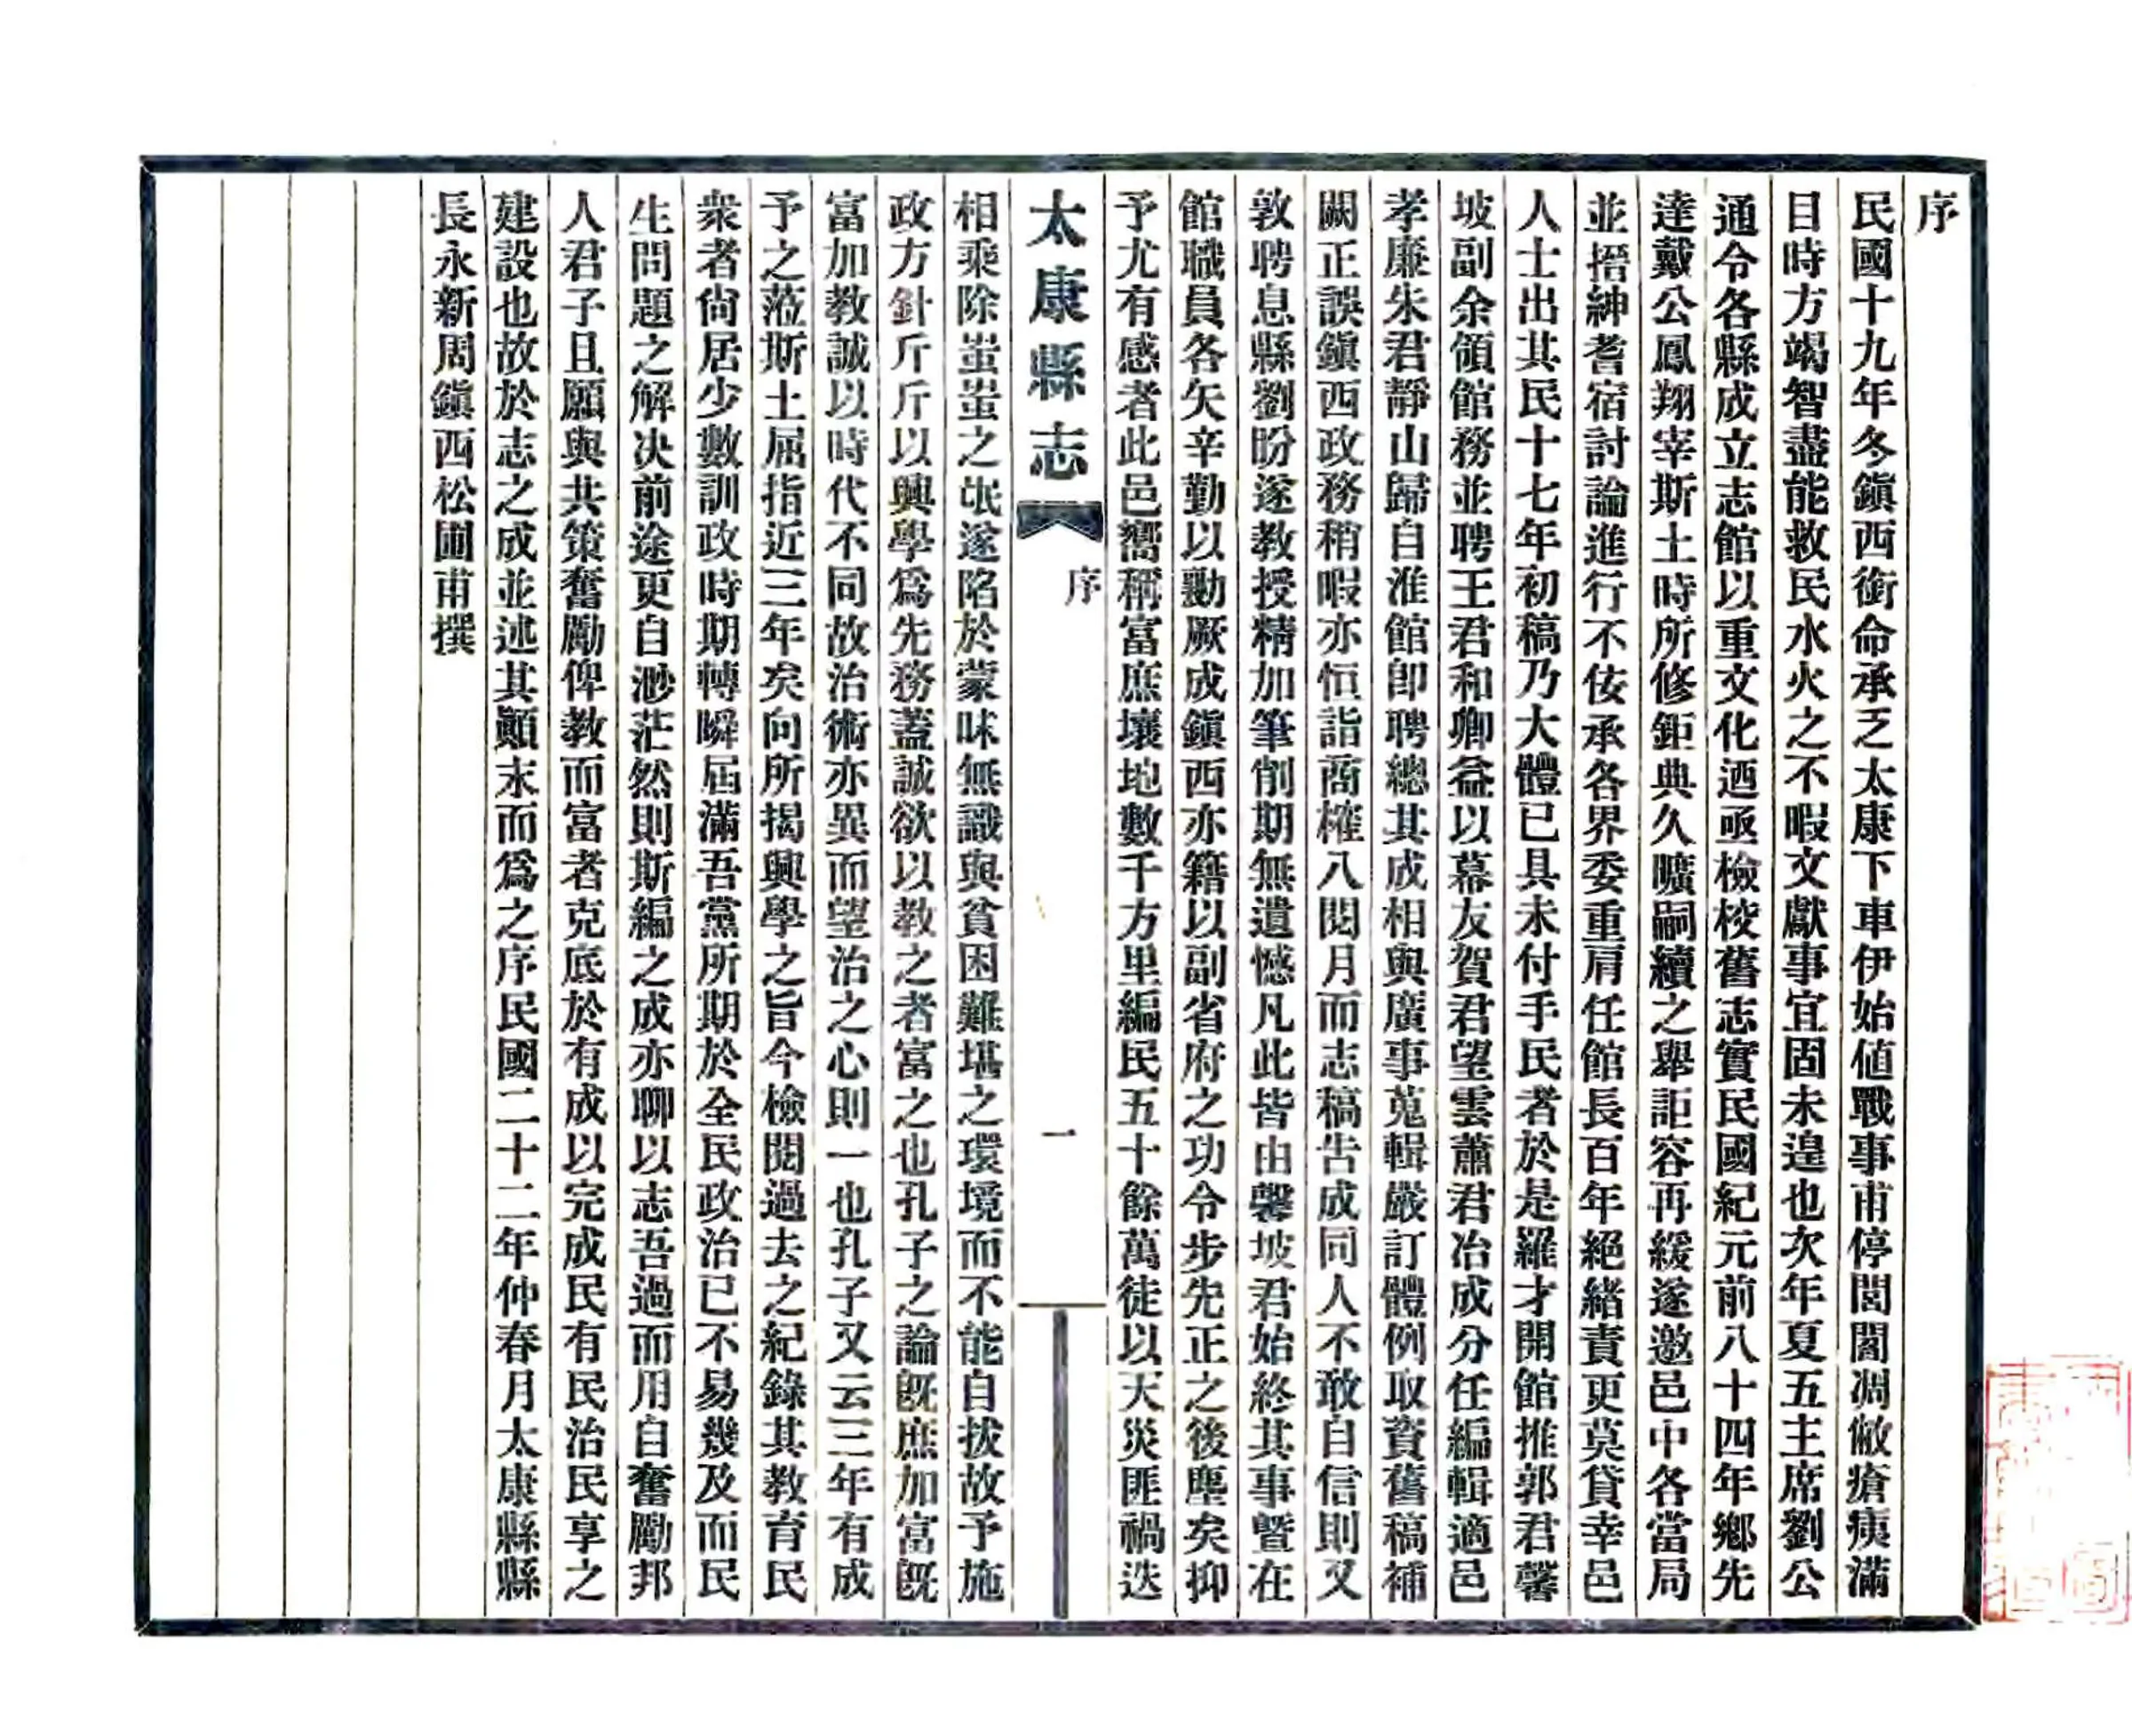 序
民國十九年冬鎭西銜命承乏太康下車伊始値戰事甫停閭閻凋敝瘡痍滿
目時方竭智盡能救民水火之不暇文獻事宜固未遑也次年夏五主席劉公
通令各縣成立志館以重文化迺亟檢校舊志實民國紀元前八十四年鄉先
達戴公鳳翔宰斯土時所修鉅典久曠嗣續之舉詎容再緩遂邀邑中各當局
並搢紳耆宿討論進行不佞承各界委重肩任館長百年絕緒責更莫貸幸邑
人士出其民十七年初稿乃大體已具未付手民者於是羅才開館推郭君馨
坡副余領館務並聘王君和卿益以幕友賀君望雲蕭君冶成分任編輯適邑
孝廉朱君靜山歸自淮館卽聘總其成相與廣事蒐輯嚴訂體例取資舊稿補
闕正誤鎭西政務稍暇亦恒詣商榷八閱月而志稿告成同人不敢自信則又
敦聘息縣劉盼遂教授精加筆削期無遺憾凡此皆由馨坡君始終其事曁在
館職員各矢辛勤以勷厥成鎭西亦籍以副省府之功令步先正之後塵矣抑
予尤有感者此邑嚮稱富庶壤地數千方里編民五十餘萬徒以天災匪禍迭
太康縣志
序
一
相乘除蚩蚩之氓遂陷於蒙昧無識與貧困難堪之環境而不能自拔故予施
政方針斤斤以興學爲先務蓋誠欲以教之者富之也孔子之論旣庶加富旣
富加教誠以時代不同故治術亦異而望治之心則一也孔子又云三年有成
予之蒞斯土屈指近三年矣向所揭興學之旨今檢閱過去之紀錄其教育民
衆者尙居少數訓政時期轉瞬屆滿吾黨所期於全民政治已不易幾及而民
生問題之解决前途更自渺茫然則斯編之成亦聊以志吾過而用自奮勵邦
人君子且願與共策奮勵俾教而富者克底於有成以完成民有民治民享之
建設也故於志之成並述其顚末而爲之序民國二十二年仲春月太康縣縣
長永新周鎭西松圃甫撰